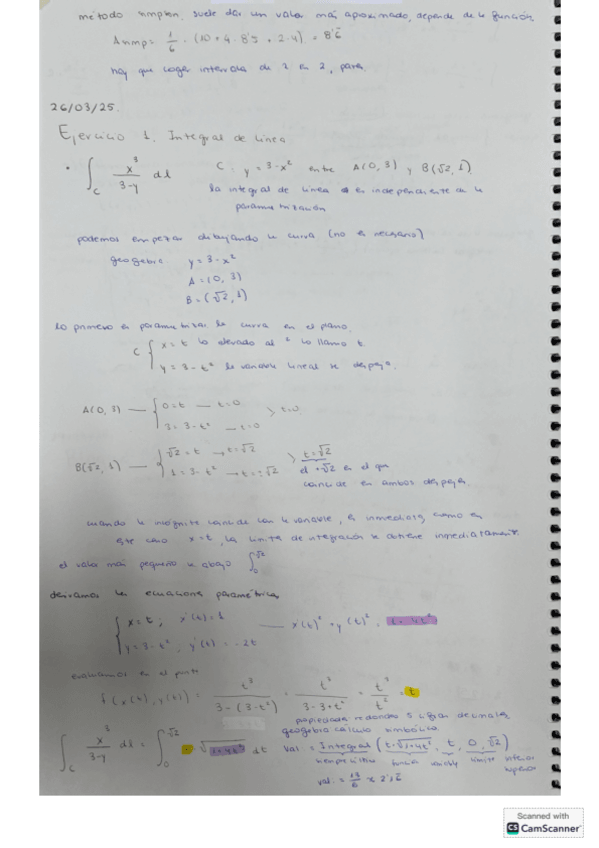 método simpson, suele dar un valor más aproximado, depende de la función,
Asimp = 1/6 · (10 + 4 · 8'5 + 2·4) = 8'6
hay que coger intervalos de 2 en 2, pares.
26/03/25.
Ejercicio 1. Integral de línea
• ∫_C x³/(3-y) dl   C: y = 3-x² entre A(0,3) y B(√2,1)
la integral de línea es independiente de la
parametrización
podemos empezar dibujando la curva (no es necesario)
geogebra   y = 3-x²
A = (0, 3)
B = (√2, 1)
lo primero es parametrizar la curva en el plano.
C { x = t lo elevado al ² lo llamo t
y = 3-t² la variable lineal se despeja.
A(0, 3) — { 0 = t — t=0
3 = 3-t² → t=0 > t=0.
B(√2, 1) — { √2 = t → t=√2
1 = 3-t² → t=±√2 > t=√2
el +√2 es el que
coincide en ambos despejes.
cuando la incógnita coincide con la variable, es inmediata, como en
este caso x=t, los límites de integración se obtiene inmediatamente.
el valor más pequeño va abajo ∫₀^√2
derivamos las ecuaciones paramétricas
{ x = t; x'(t) = 1
y = 3-t², y'(t) = -2t — x'(t)² + y'(t)² = 1+4t²
evaluamos en el punto
f(x(t), y(t)) = t³/(3-(3-t²)) = t³/(3-3+t²) = t³/t² = t
propiedades redondeo 5 cifras decimales
geogebra cálculo simbólico
∫_C x³/(3-y) dl = ∫₀^√2 t · √(1+4t²) dt   Val = Integral (t·√1+4t², t, 0, √2)
función variable límite inferior
superior
val. = 13/6 ≈ 2'16
Scanned with
CS CamScanner